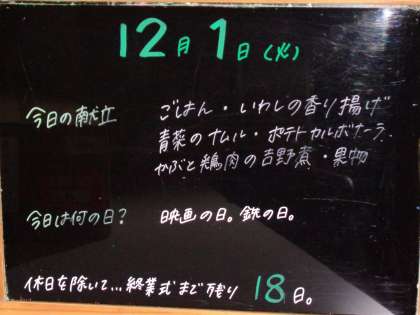 12月1日(火)
今日の献立 ごはん・いわしの香り揚げ
青菜のナムル・ポテトカルボナーラ
かぶと鶏肉の吉野煮・果物
今日は何の日? 映画の日。鉄の日。
休日を除いて…終業式まで残り 18日。